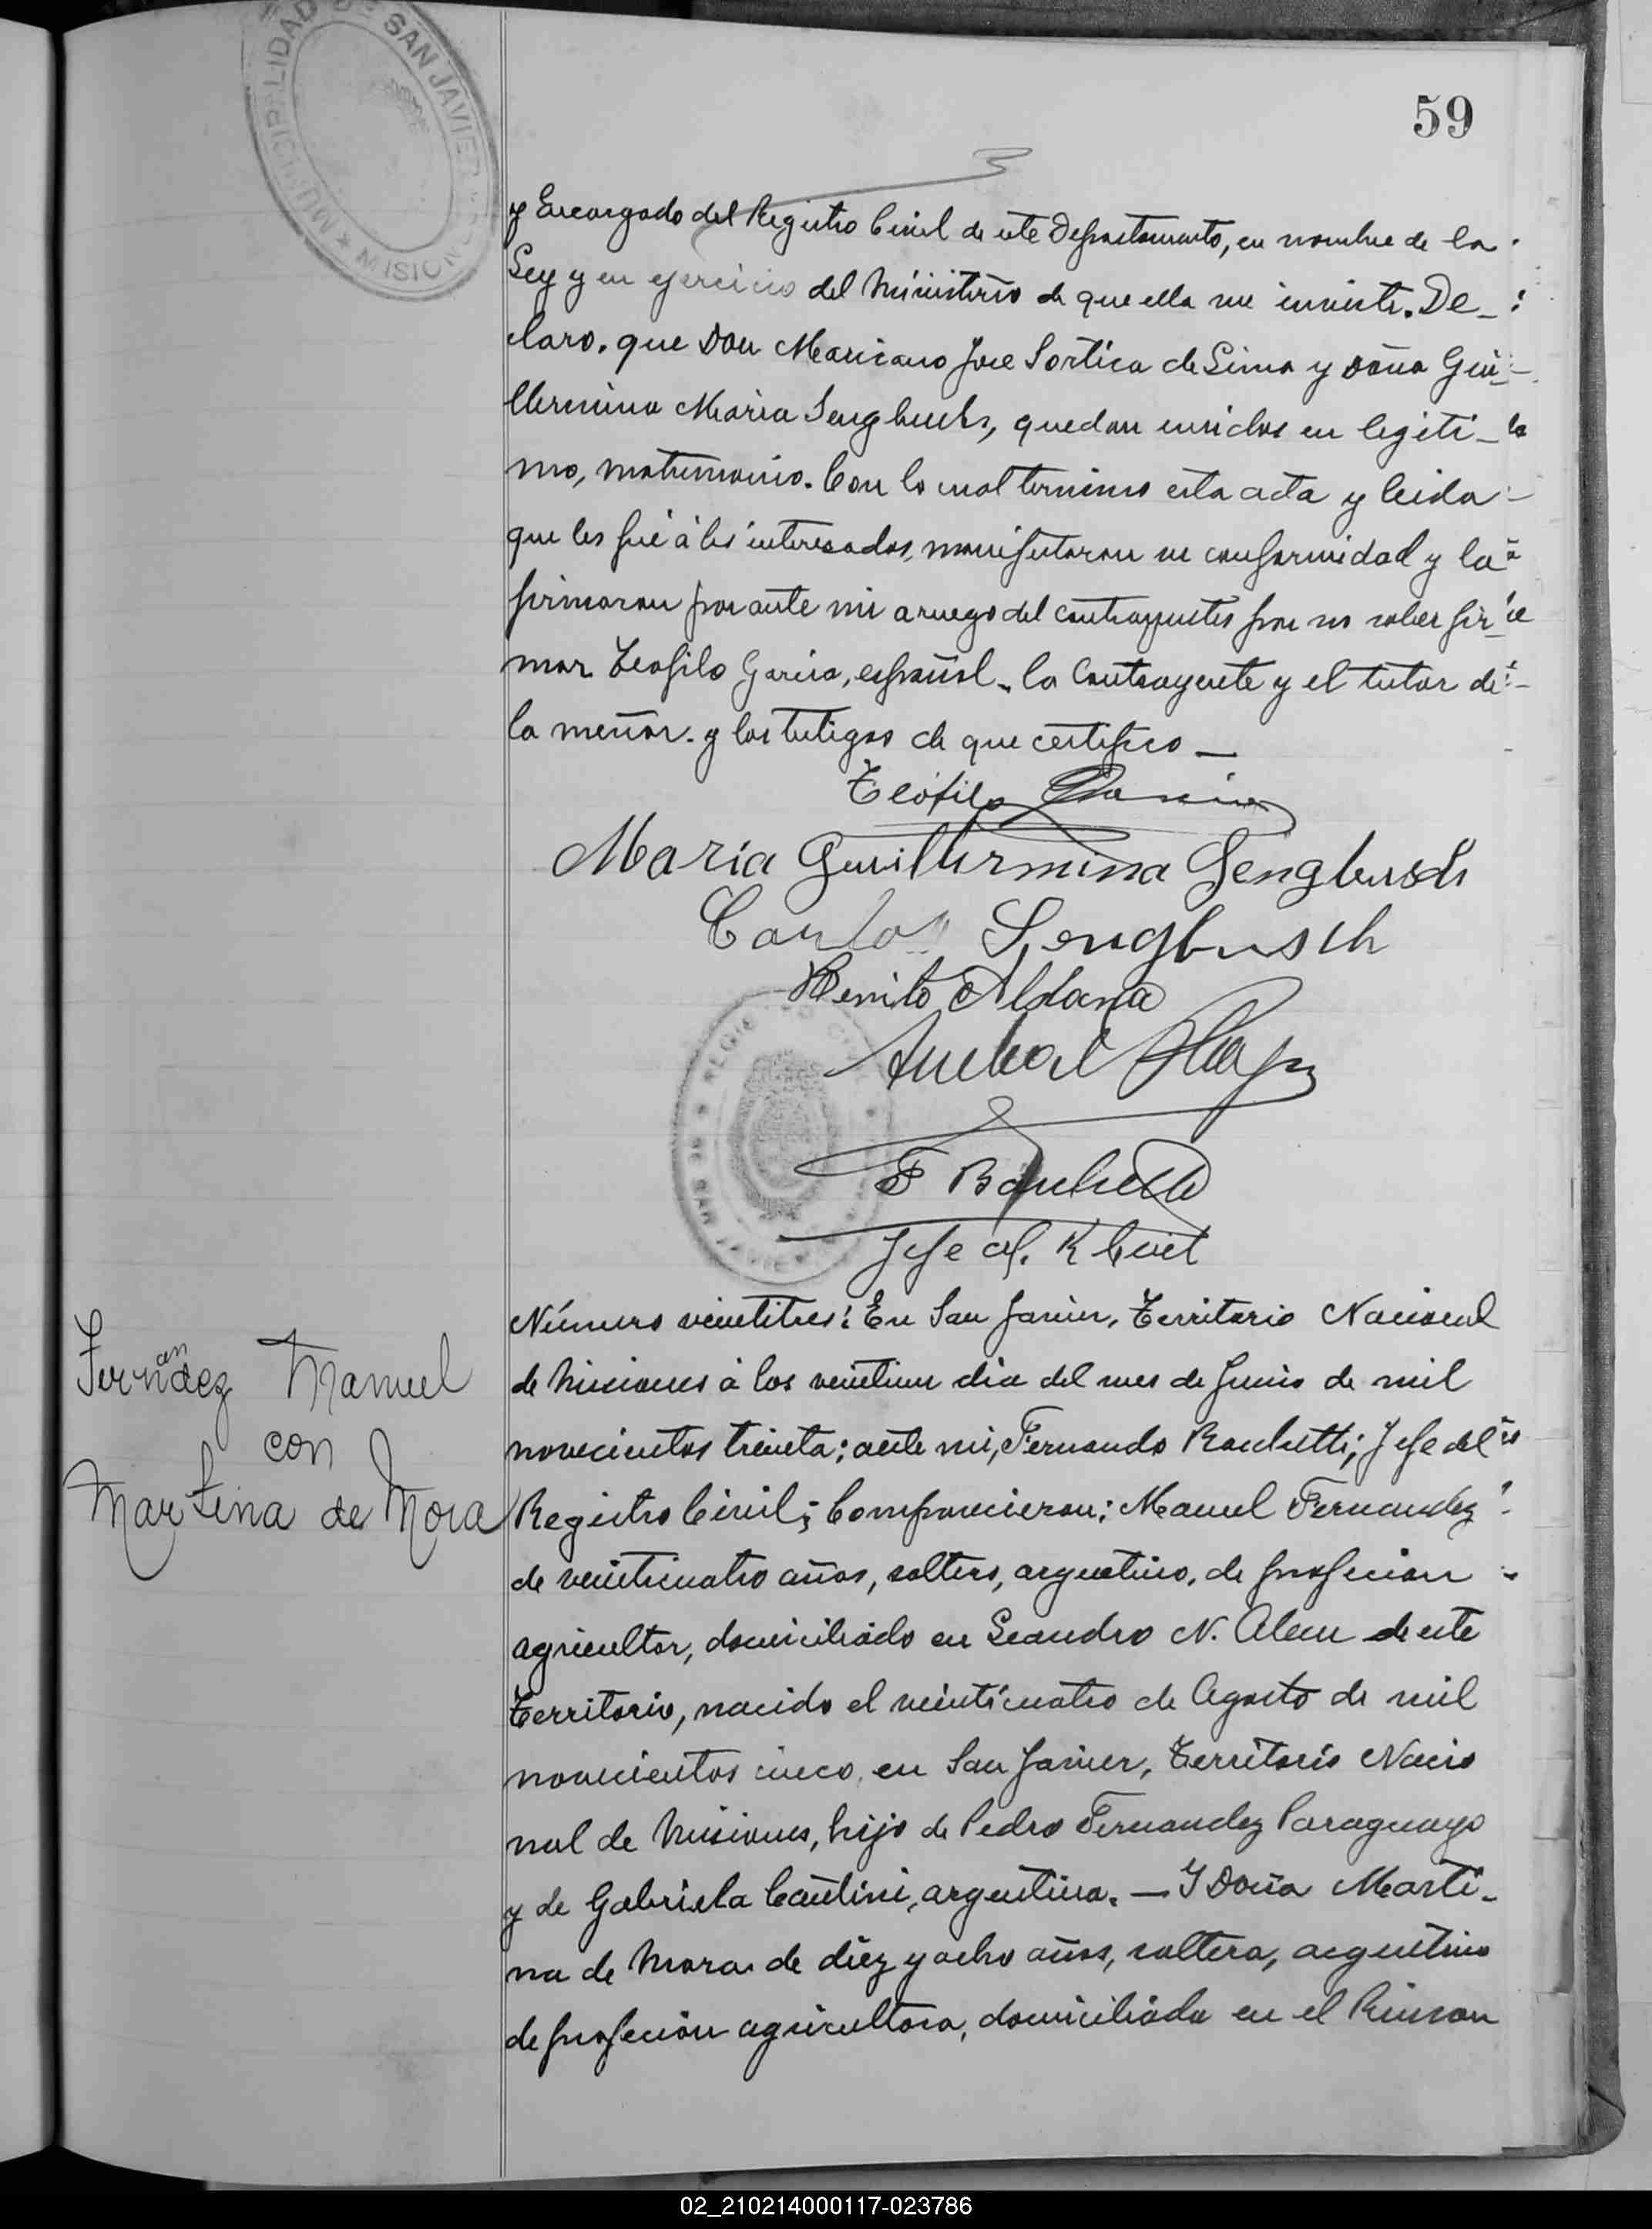 MUNICIPALIDAD DE SAN JAVIER
★ MISIONES
59
y Encargado del Registro Civil de este Departamento, en nombre de la
Ley y en ejercicio del Ministerio de que ella me inviste. De_
claro. que Don Mariano Jose Sortica de Lima y doña Gui_
llermina Maria Sengbusch, quedan unidos en legiti_
mo, matrimonio. Con lo cual termino esta acta y leida
que les fué á los interesados, manifestaron su conformidad y la
firmaron por ante mi a ruego del contrayente por no saber fir_
mar Teofilo Garcia, español. la Contrayente y el tutor de
la menor. y los testigos de que certifico _
Teófilo Garcia
Maria Guillermina Sengbusch
Carlos Sengbusch
Benito Aldana
Anibal
F Bacchetti
Jefe del R Civil
Fernandez Manuel
con
Martina de Mora
Número veintitres: En San Javier, Territorio Nacional
de Misiones á los veintiun dia del mes de Junio de mil
novecientos treinta; ante mi, Fernando Bacchetti; Jefe del
Registro Civil; Comparecieron; Manuel Fernandez
de veinticuatro años, soltero, argentino, de profecion
agricultor, domiciliado en Leandro N. Alem de este
Territorio, nacido el veinticuatro de Agosto de mil
novecientos cinco, en San Javier, Territorio Nacio
nal de Misiones, hijo de Pedro Fernandez Paraguayo
y de Gabriela argentina. — Y Doña Marti_
na de Mora de diez y ocho años, soltera, argentina
de profecion agricultora, domiciliada en el Rincon
02_210214000117-023786